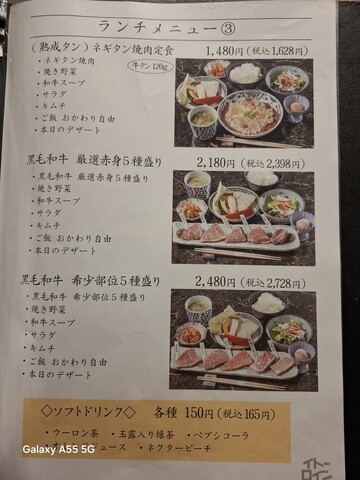 ランチメニュー③
(熟成タン)ネギタン焼肉定食 1,480円(税込1,628円)
・ネギタン焼肉 牛タン120g
・焼き野菜
・和牛スープ
・サラダ
・キムチ
・ご飯 おかわり自由
・本日のデザート
黒毛和牛 厳選赤身5種盛り 2,180円(税込2,398円)
・黒毛和牛 厳選赤身5種盛り
・焼き野菜
・和牛スープ
・サラダ
・キムチ
・ご飯 おかわり自由
・本日のデザート
黒毛和牛 希少部位5種盛り 2,480円(税込2,728円)
・黒毛和牛 希少部位5種盛り
・焼き野菜
・和牛スープ
・サラダ
・キムチ
・ご飯 おかわり自由
・本日のデザート
◇ソフトドリンク◇ 各種 150円(税込165円)
・ウーロン茶 ・玉露入り緑茶 ・ペプシコーラ
ジュース ・ネクターピーチ
Galaxy A55 5G